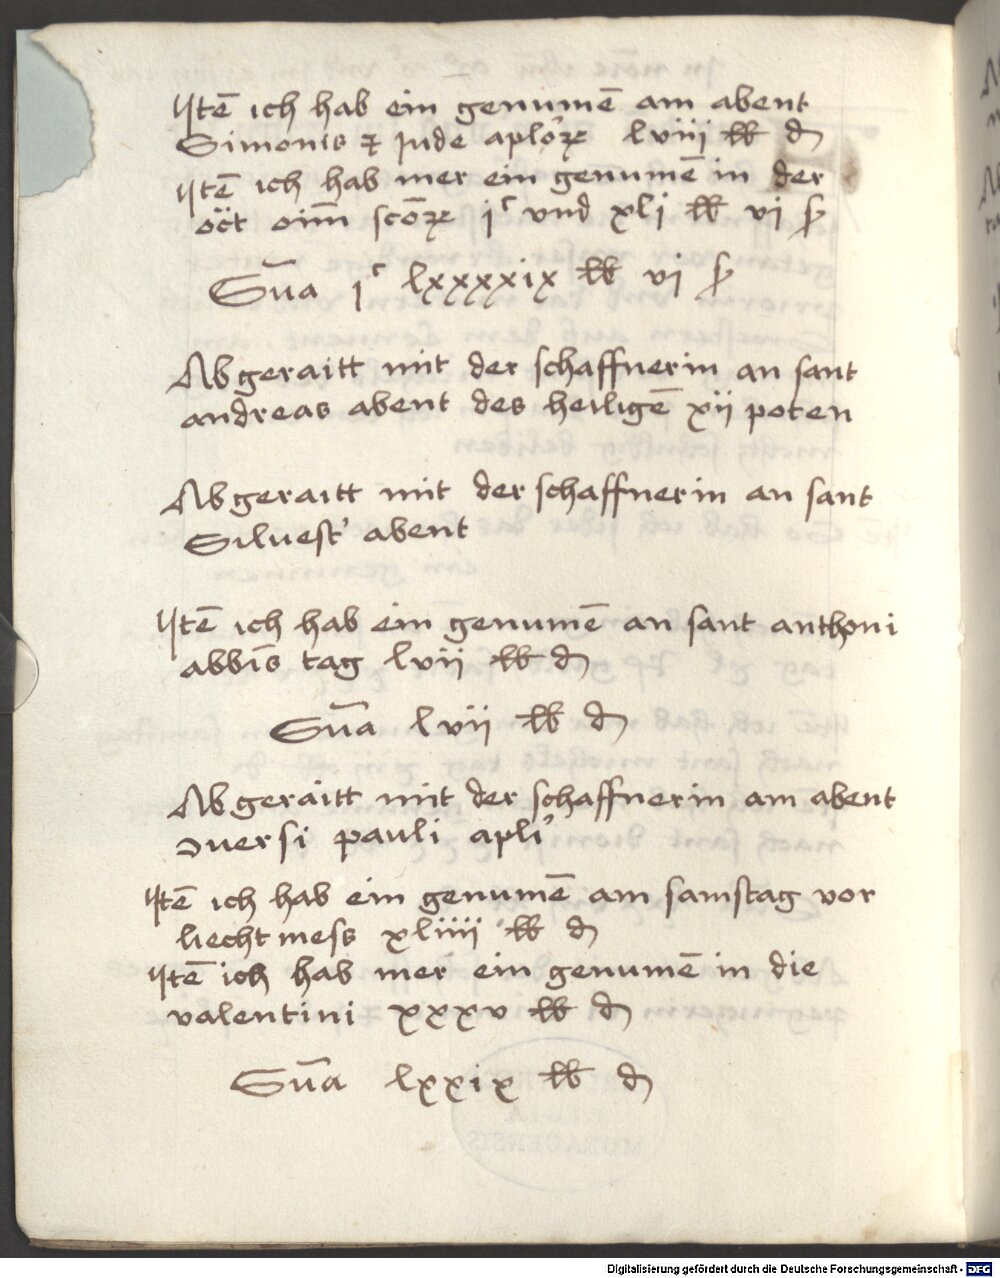 Itē ich hab ein genumē am abent
Simonis ⁊ Jude aplõꝝ lviii ℔ ₰
Itē ich hab mer ein genumē in der
oct̄ oim̄ scõꝝ jᶜ und xlj ℔ vi ß
Sūa jᶜ lxxxxix ℔ vi ß
Abgeraitt mit der schaffnerin an sant
andreas abent des heiligē xii poten
Abgeraitt mit der schaffnerin an sant
Siluest' abent
Itē ich hab ein genumē an sant anthoni
abbis̄ tag lvii ℔ ₰
Sūa lvii ℔ ₰
Abgeraitt mit der schaffnerin am abent
ꝯuersi pauli apli'
Itē ich hab ein genumē am samstag vor
liechtmess xliiii ℔ ₰
Itē ich hab mer ein genumē in die
valentini xxxv ℔ ₰
Sūa lxxix ℔ ₰
Digitalisierung gefördert durch die Deutsche Forschungsgemeinschaft - DFG